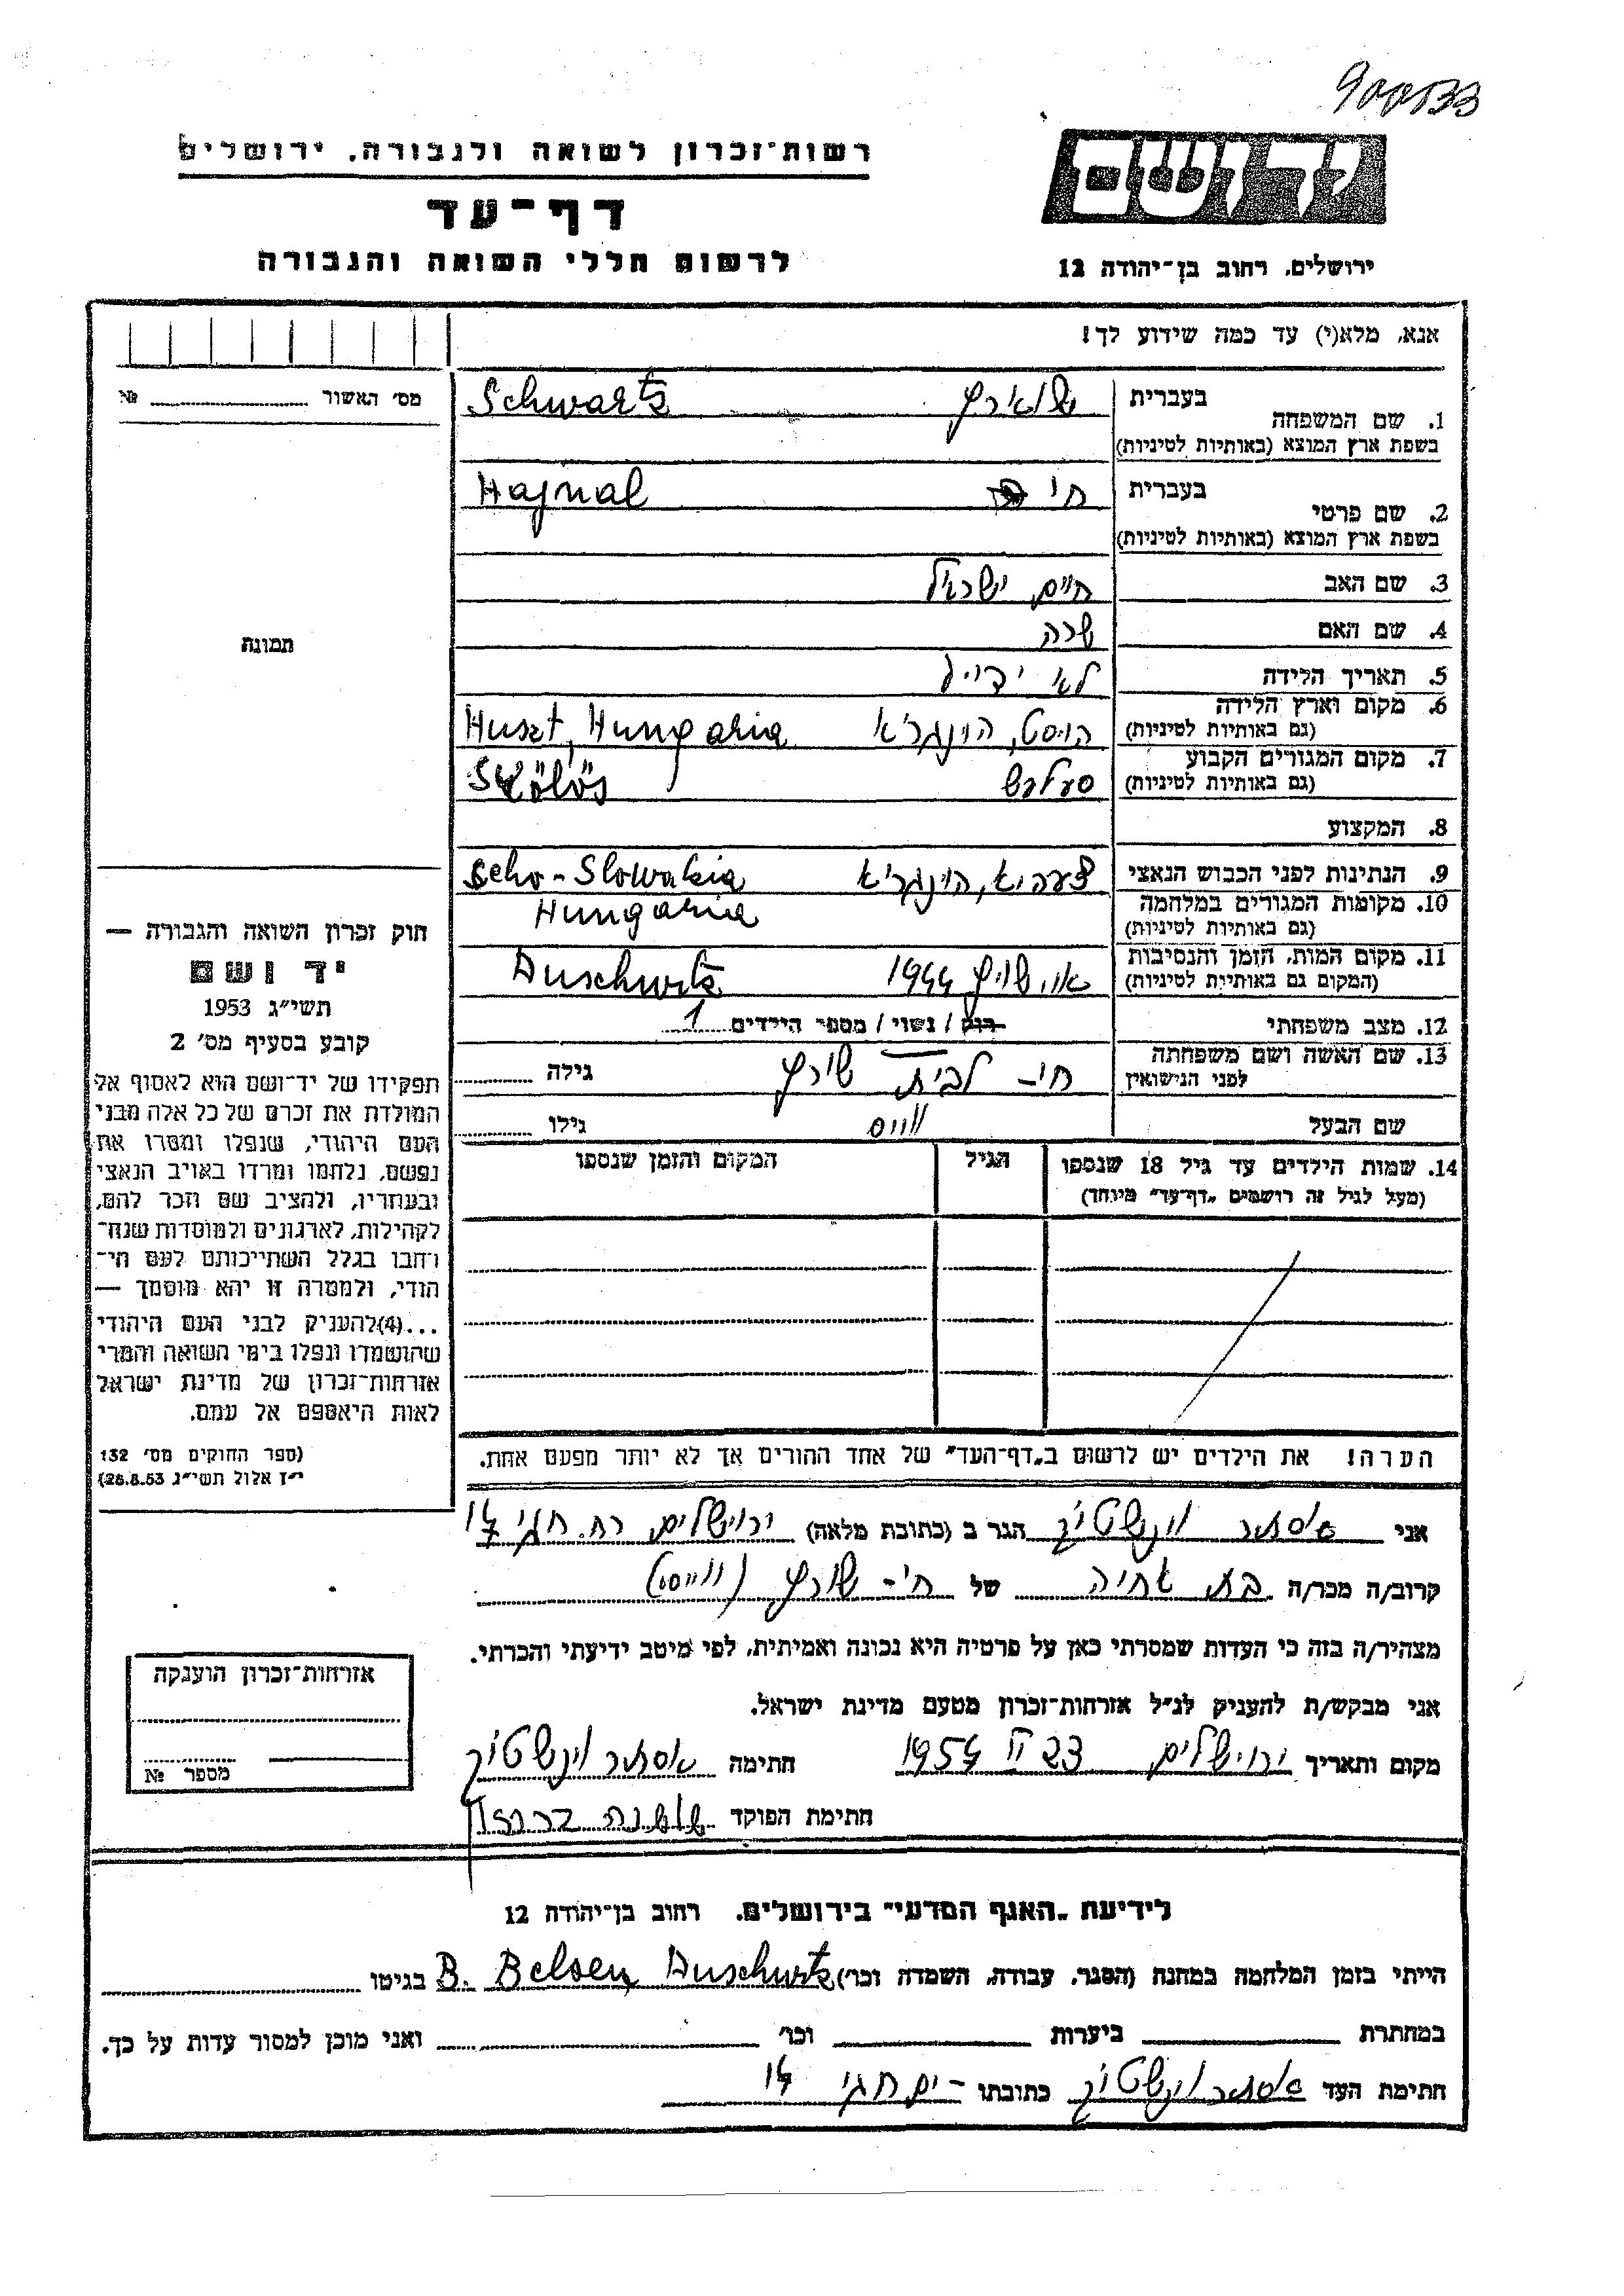 900533
יד ושם
ירושלים, רחוב בן־יהודה 12
רשות־זכרון לשואה ולגבורה, ירושלים
דף־עד
לרשום חללי השואה והגבורה
אנא, מלא(י) עד כמה שידוע לך!
מס' האשור №
תמונה
חוק זכרון השואה והגבורה —
יד ושם
תשי"ג 1953
קובע בסעיף מס' 2
תפקידו של יד־ושם הוא לאסוף אל
המולדת את זכרם של כל אלה מבני
העם היהודי, שנפלו ומסרו את
נפשם, נלחמו ומרדו באויב הנאצי
ובעוזריו, ולהציב שם וזכר להם,
לקהילות, לארגונים ולמוסדות שנח־
רבו בגלל השתייכותם לעם הי־
הודי, ולמטרה זו יהא מוסמך —
...(4) להעניק לבני העם היהודי
שהושמדו ונפלו בימי השואה והמרי
אזרחות־זכרון של מדינת ישראל
לאות היאספם אל עמם.
(ספר החוקים מס' 132
י"ז אלול תשי"ג 28.8.53)
1. שם המשפחה בעברית שווארץ Schwartz
בשפת ארץ המוצא (באותיות לטיניות)
2. שם פרטי בעברית חי Hajnal
בשפת ארץ המוצא (באותיות לטיניות)
3. שם האב חיים ישראל
4. שם האם שרה
5. תאריך הלידה לא ידוע
6. מקום וארץ הלידה הוסט, הונגריא Huszt, Hungaria
(גם באותיות לטיניות)
7. מקום המגורים הקבוע סעלוש Szőlős
(גם באותיות לטיניות)
8. המקצוע
9. הנתינות לפני הכבוש הנאצי הונגריא Ceho-Slowakia
10. מקומות המגורים במלחמה Hungaria
(גם באותיות לטיניות)
11. מקום המות, הזמן והנסיבות אושוויץ 1944 Auschwitz
(המקום גם באותיות לטיניות)
12. מצב משפחתי רוק / נשוי / מספר הילדים 1
13. שם האשה ושם משפחתה חי- לבית שורץ גילה
לפני הנישואין
שם הבעל ווייס גילו
14. שמות הילדים עד גיל 18 שנספו הגיל המקום והזמן שנספו
(מעל לגיל זה רושמים "דף־עד" מיוחד)
הערה! את הילדים יש לרשום ב"דף־העד" של אחד ההורים אך לא יותר מפעם אחת.
אני אסתר וינשטוק הגר ב (כתובת מלאה) ירושלים רח. חגי 14
קרוב/ה מכר/ה בת אחיה של חי- שורץ (ווייס)
מצהיר/ה בזה כי העדות שמסרתי כאן על פרטיה היא נכונה ואמיתית, לפי מיטב ידיעתי והכרתי.
אני מבקש/ת להעניק לנ"ל אזרחות־זכרון מטעם מדינת ישראל.
מקום ותאריך ירושלים 23 1954 חתימה אסתר וינשטוק
חתימת הפוקד שושנה
אזרחות־זכרון הוענקה
מספר №
לידיעת "האגף המדעי" בירושלים, רחוב בן־יהודה 12
הייתי בזמן המלחמה במחנה (הסגר, עבודה, השמדה וכו') B. Belsen, Auschwitz בגיטו
במחתרת ביערות וכו' ואני מוכן למסור עדות על כך.
חתימת העד אסתר וינשטוק כתובתו ים חגי 14